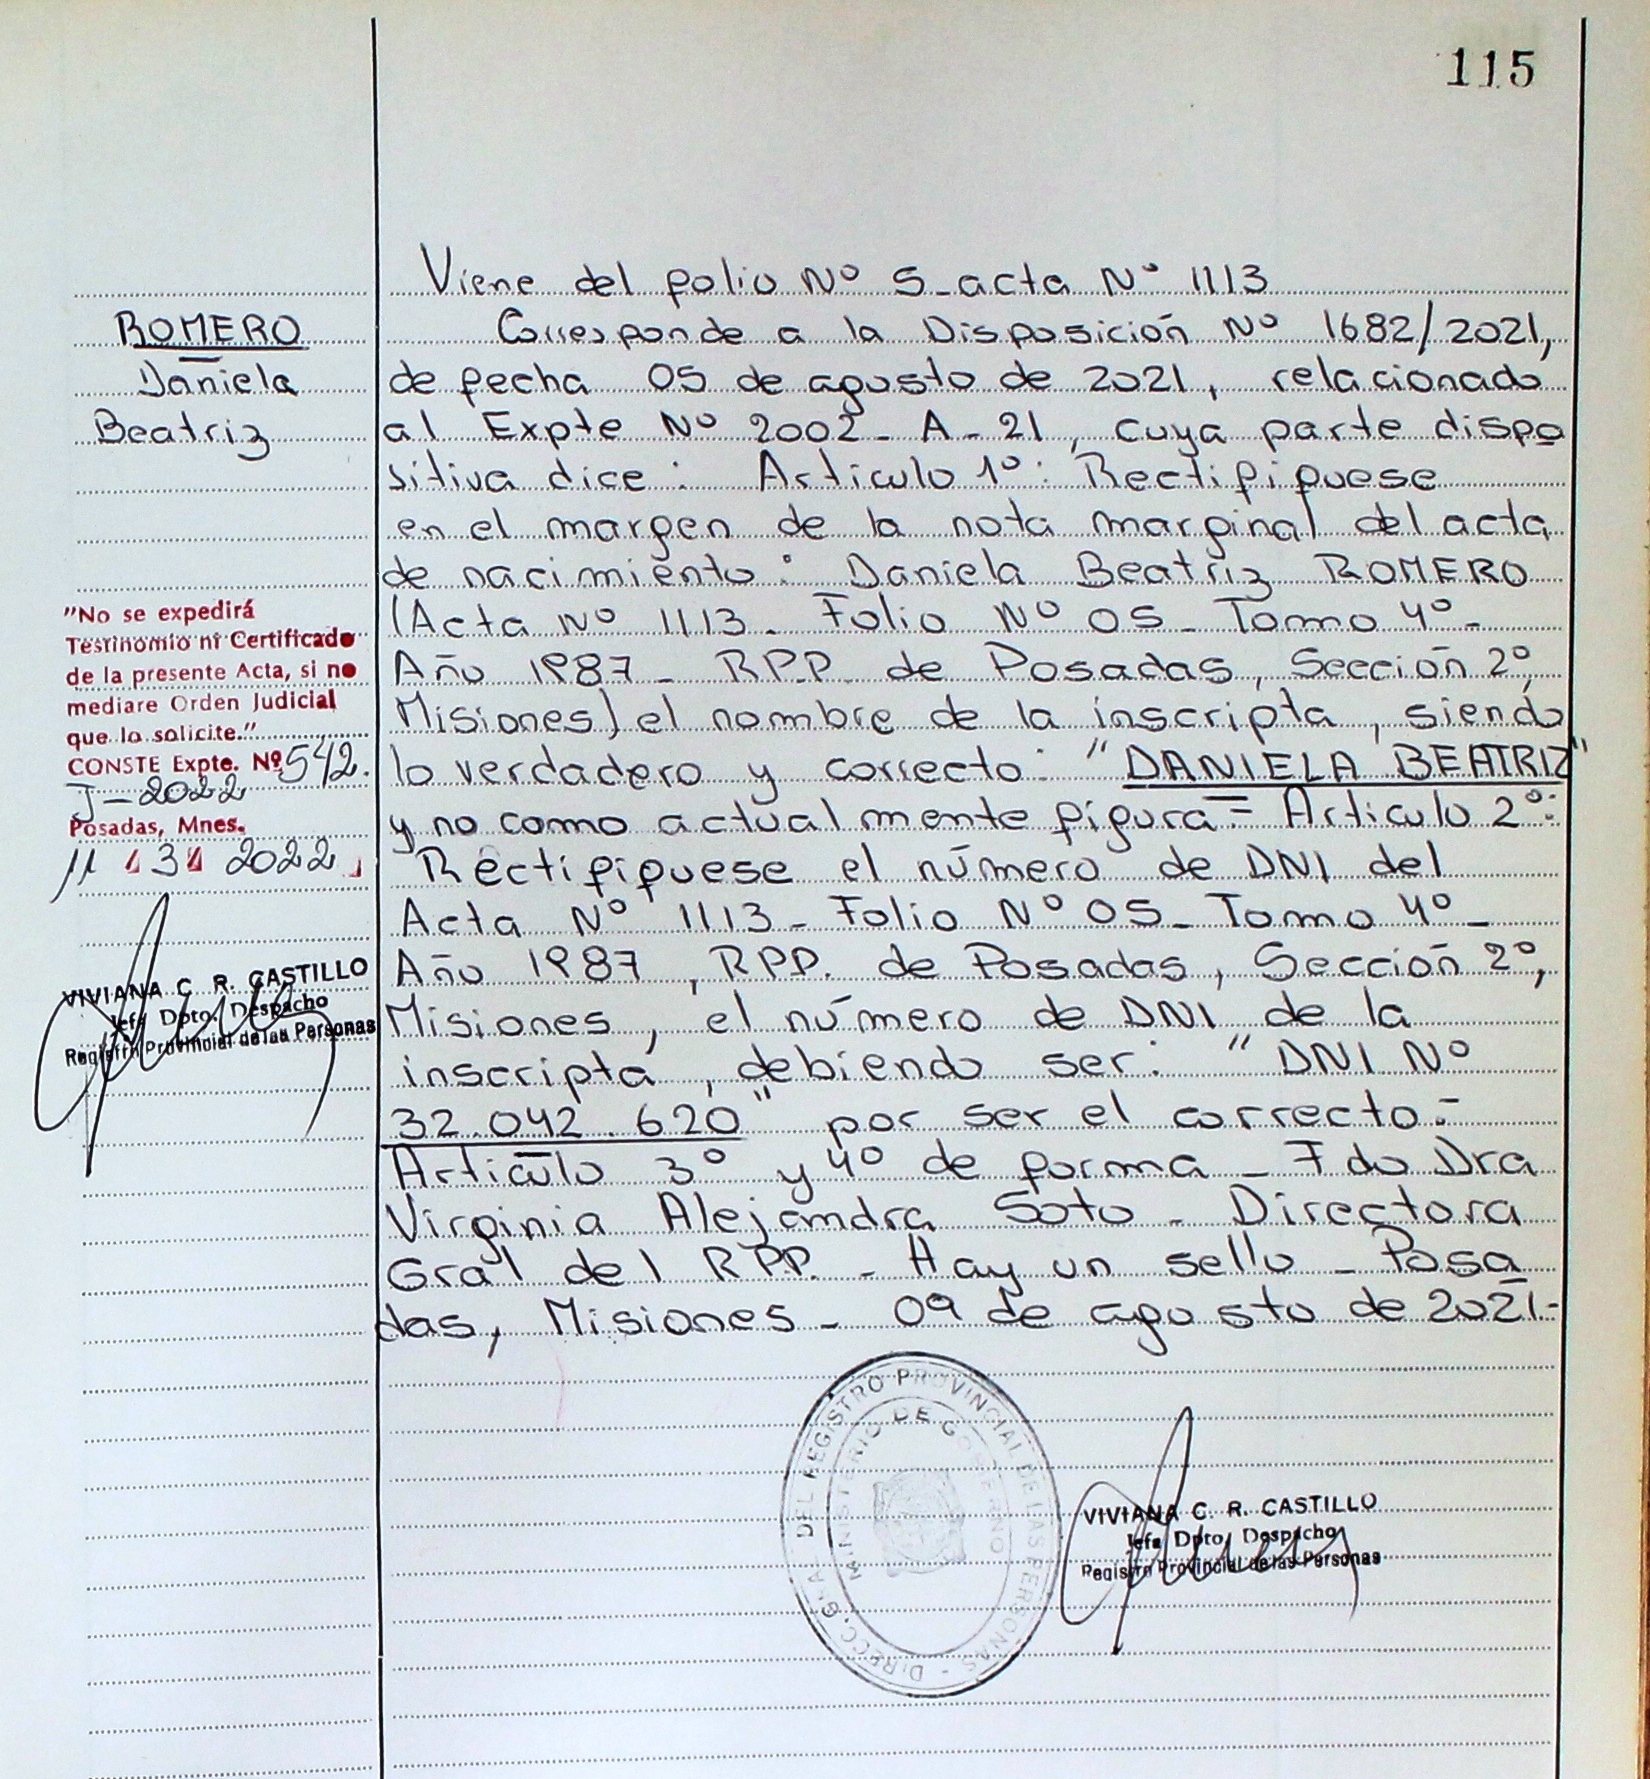 115
Viene del folio Nº 5-acta Nº 1113
Corresponde a la Disposición Nº 1682/2021,
de fecha 05 de agosto de 2021, relacionado
al Expte Nº 2002-A-21, cuya parte dispo
sitiva dice: Artículo 1º: Rectifíquese
en el margen de la nota marginal del acta
de nacimiento: Daniela Beatriz ROMERO
(Acta Nº 1113- Folio Nº 05- Tomo 4º-
Año 1987- RPP. de Posadas, Sección 2º,
Misiones) el nombre de la inscripta, siendo
lo verdadero y correcto: "DANIELA BEATRIZ"
y no como actualmente figura- Artículo 2º:
Rectifíquese el número de DNI del
Acta Nº 1113- Folio Nº 05- Tomo 4º-
Año 1987, RPP. de Posadas, Sección 2º,
Misiones, el número de DNI de la
inscripta, debiendo ser: "DNI Nº
32.042.620" por ser el correcto.-
Artículo 3º y 4º de forma- Fdo Dra
Virginia Alejandra Soto- Directora
Gral del RPP.- Hay un sello- Posa
das, Misiones- 09 de agosto de 2021.-
ROMERO
Daniela
Beatriz
"No se expedirá
Testimonio ni Certificado
de la presente Acta, si no
mediare Orden Judicial
que lo solicite."
CONSTE Expte. Nº 542.
J-2022
Posadas, Mnes.
11 3 2022
VIVIANA C. R. CASTILLO
Jefa Dpto. Despacho
Registro Provincial de las Personas
DIRECC. GRAL DEL REGISTRO PROVINCIAL DE LAS PERSONAS -
MINISTERIO DE GOBIERNO
VIVIANA C. R. CASTILLO
Jefa Dpto. Despacho
Registro Provincial de las Personas